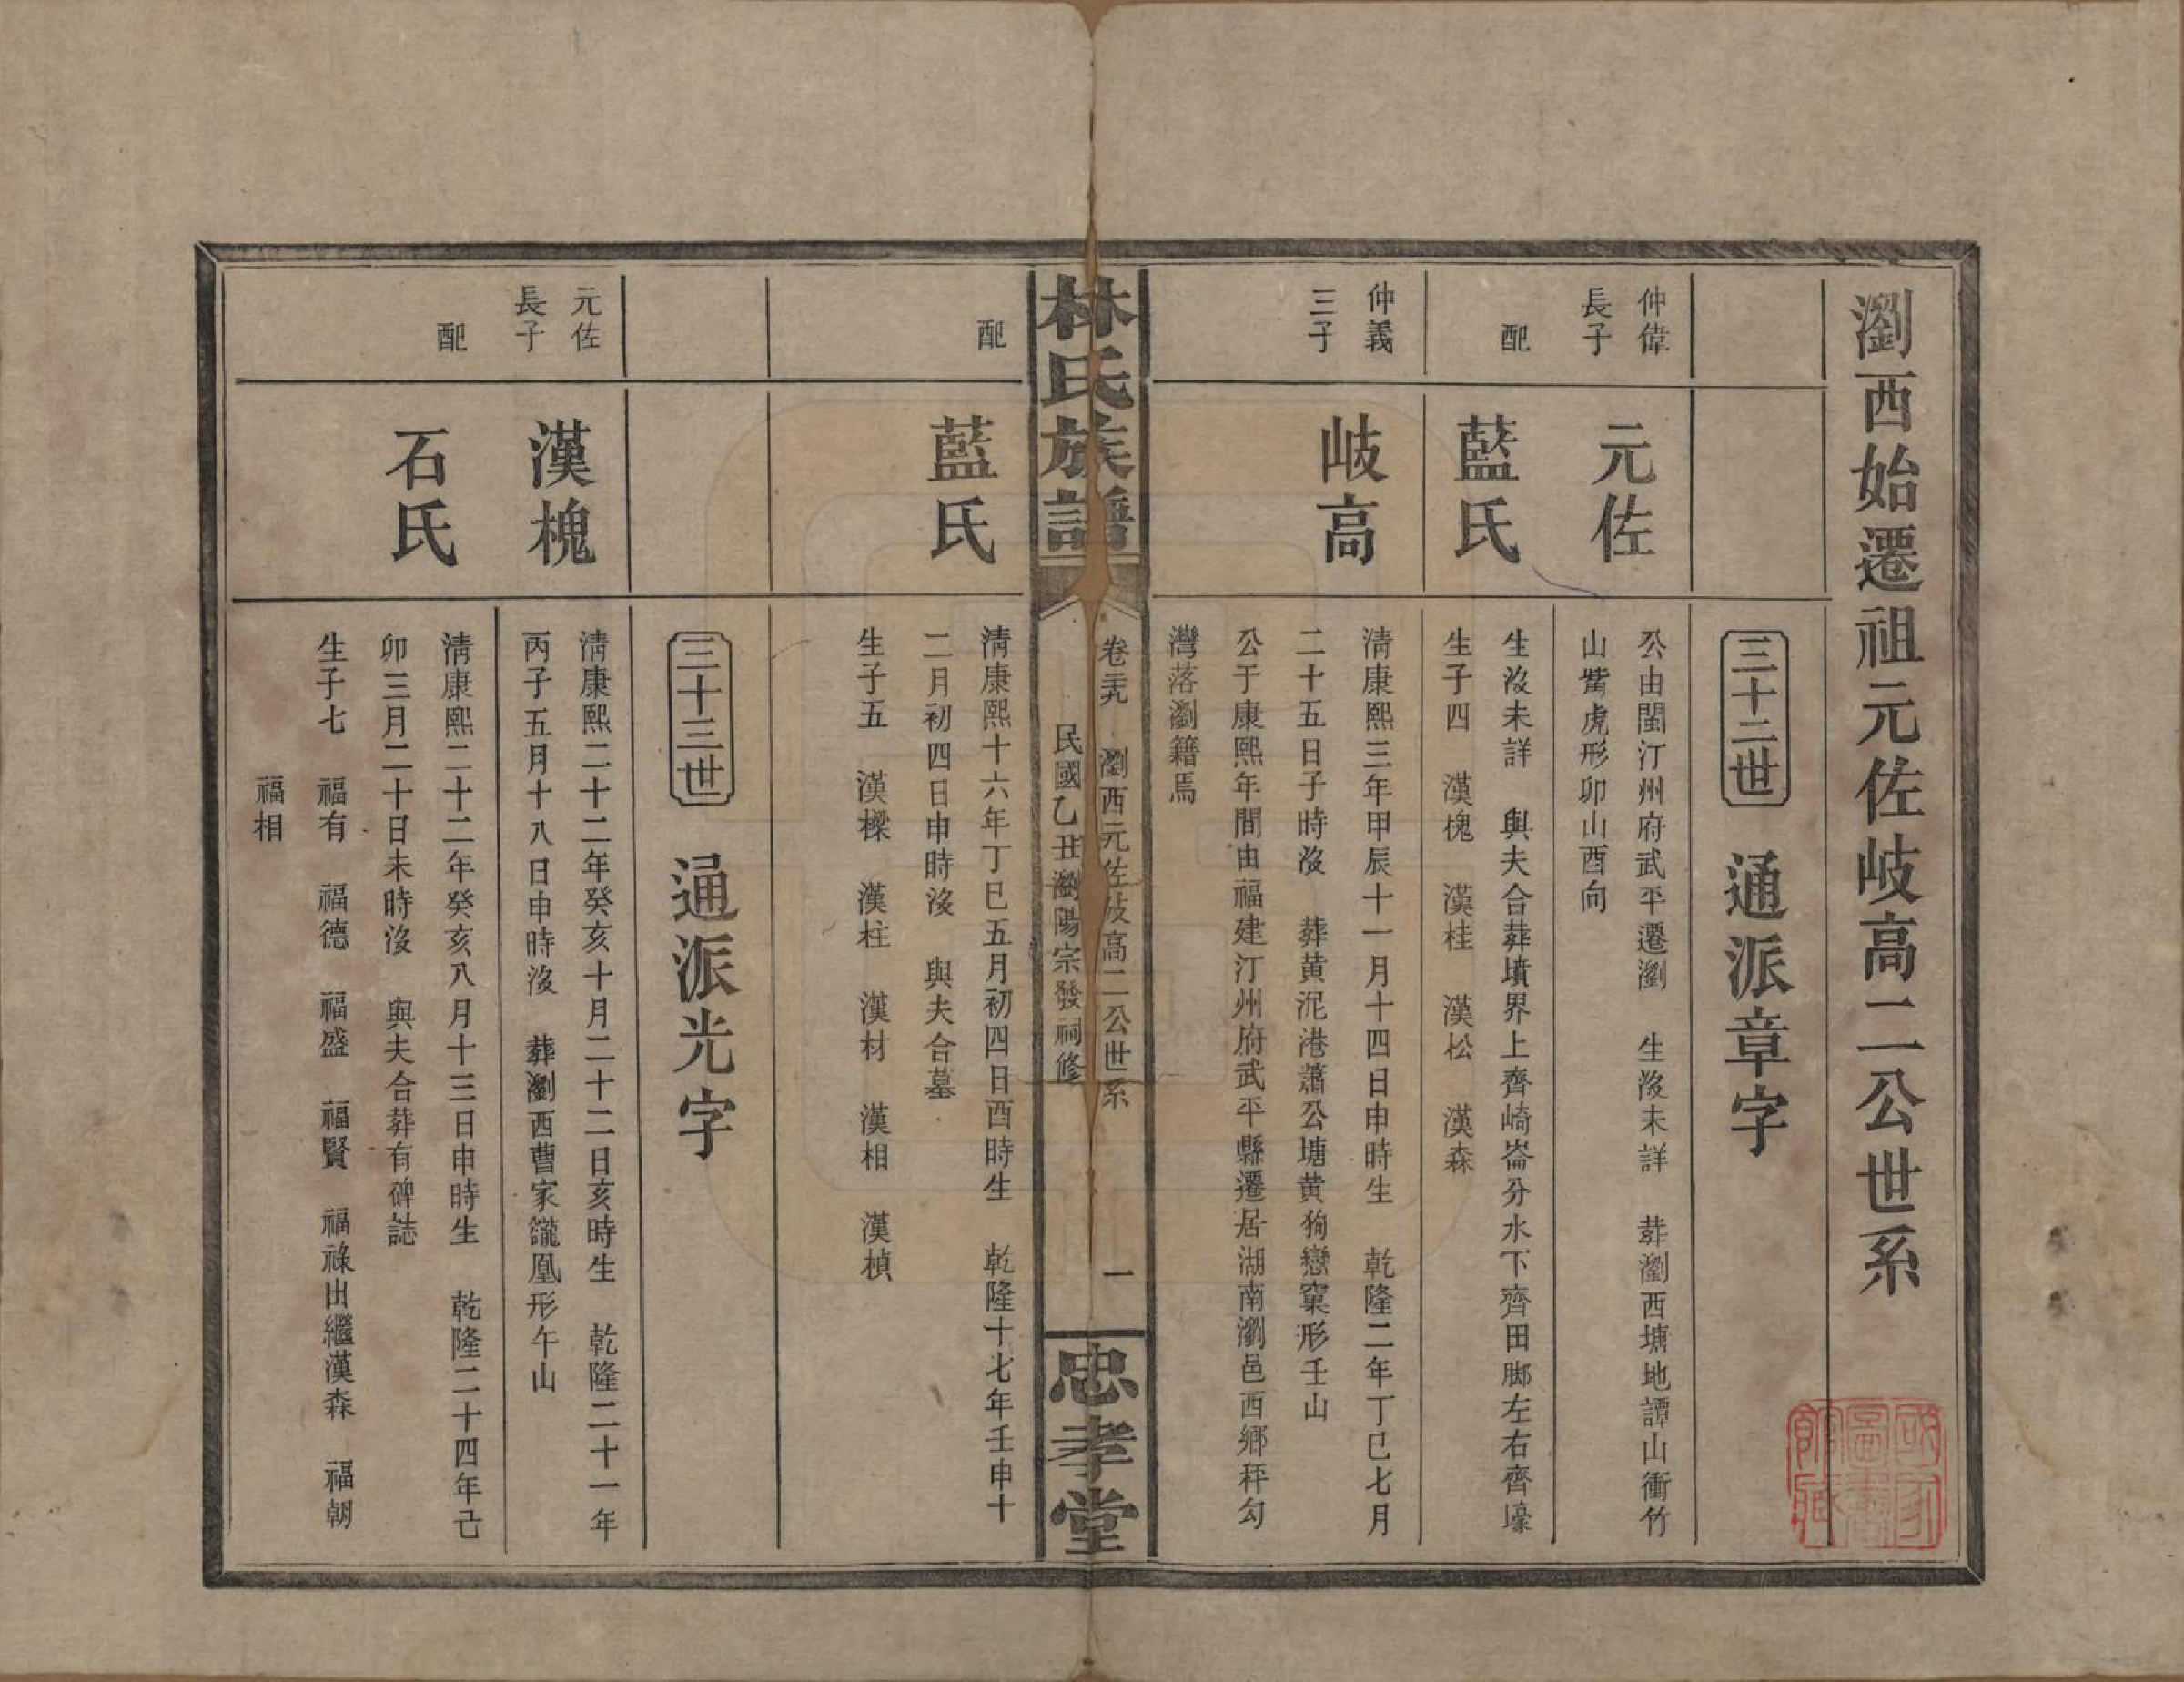 瀏西始遷祖元佐岐高二公世系
三十二世　通派章字
仲偉
長子
元佐
公由閩汀州府武平遷瀏　生沒未詳　葬瀏西塘地譚山衝竹
山觜虎形卯山酉向
配
藍氏
生沒未詳　與夫合葬墳界上齊崎崙分水下齊田脚左右齊壕
生子四　漢槐　漢桂　漢松　漢森
仲義
三子
岐高
清康熙三年甲辰十一月十四日申時生　乾隆二年丁巳七月
二十五日子時沒　葬黃泥港蕭公塘黃狗戀窠形壬山
公于康熙年間由福建汀州府武平縣遷居湖南瀏邑西鄉秤勾
灣落瀏籍焉
林氏族譜
卷三九　瀏西元佐岐高二公世系　一
民國乙丑瀏陽宗發祠修
忠孝堂
配
藍氏
清康熙十六年丁巳五月初四日酉時生　乾隆十七年壬申十
二月初四日申時沒　與夫合墓
生子五　漢樑　漢柱　漢材　漢相　漢楨
三十三世　通派光字
元佐
長子
漢槐
清康熙二十二年癸亥十月二十二日亥時生　乾隆二十一年
丙子五月十八日申時沒　葬瀏西曹家龍凰形午山
配
石氏
清康熙二十二年癸亥八月十三日申時生　乾隆二十四年己
卯三月二十日未時沒　與夫合葬有碑誌
生子七　福有　福德　福盛　福賢　福祿出繼漢森　福朝
福相